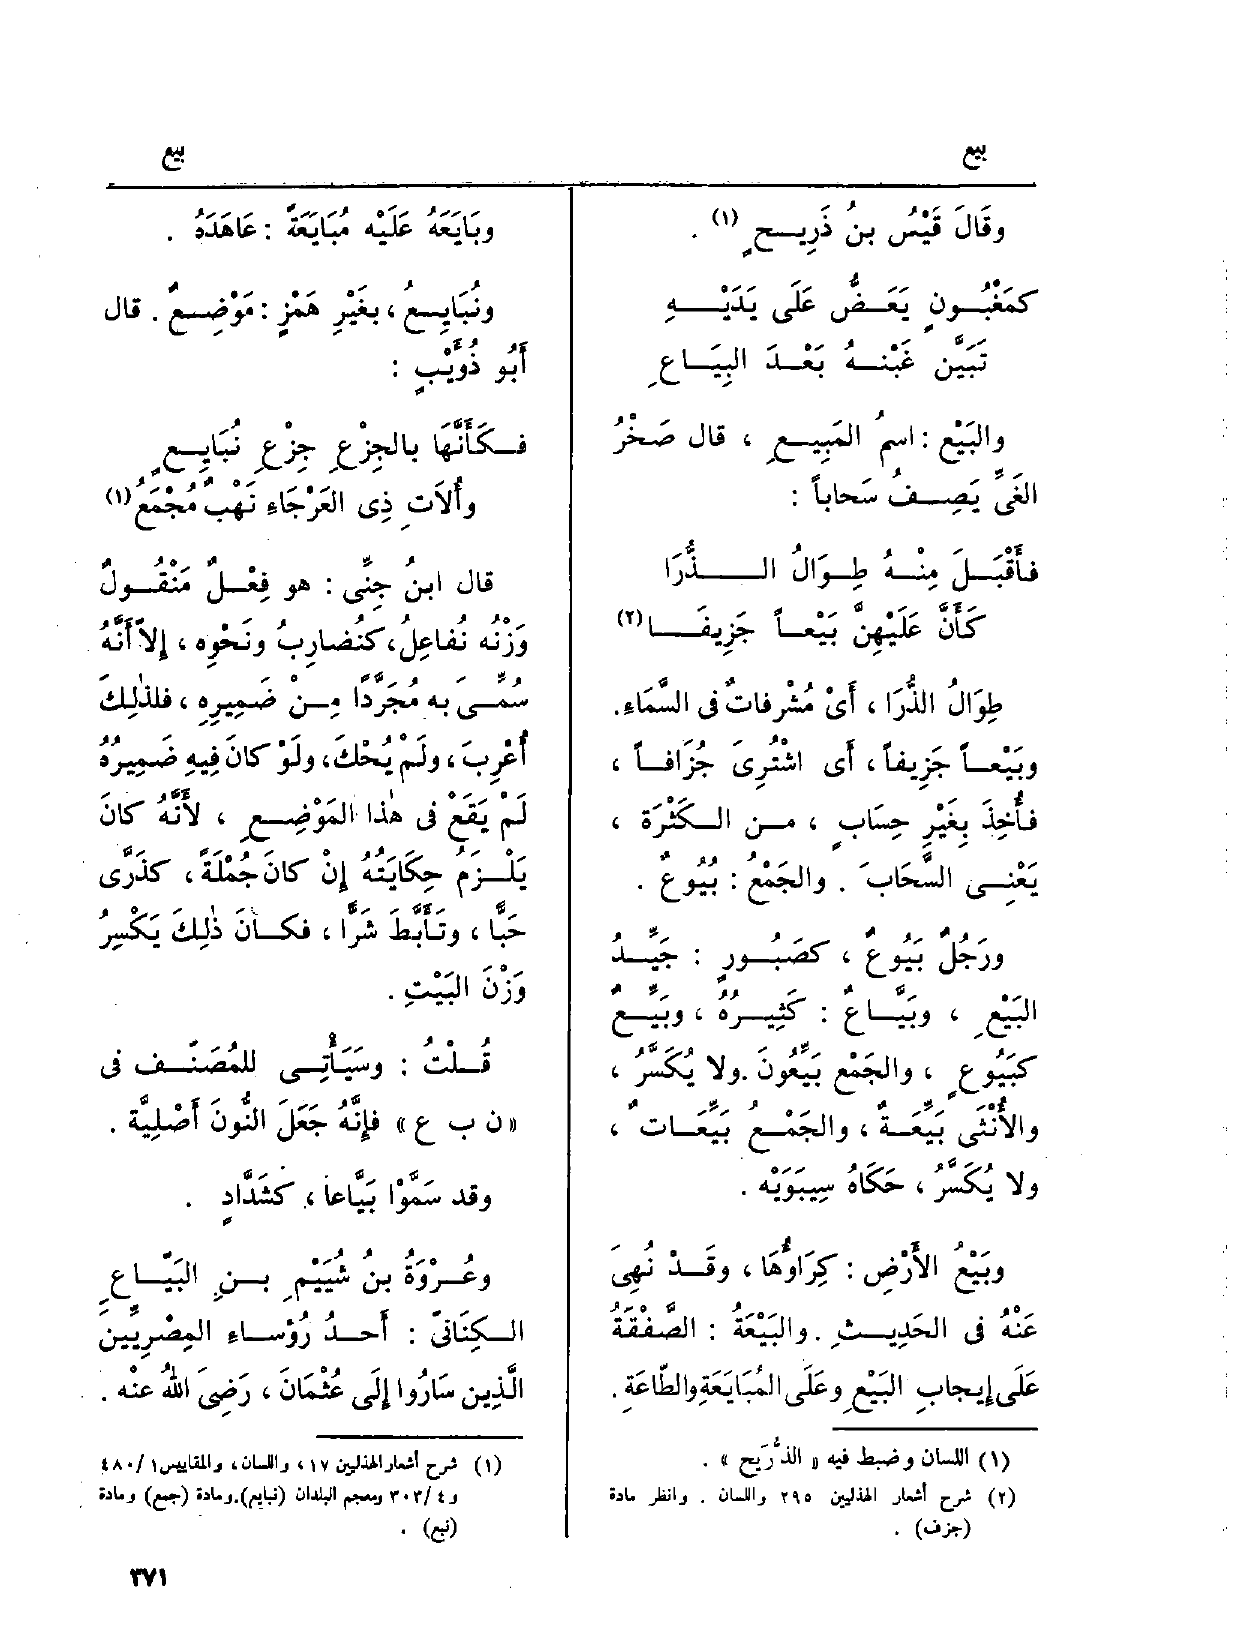 بيع
وقَالَ قَيْسُ بنُ ذَرِيــحٍ (١) .
كمَغْبُــونٍ يَعَــضُّ عَلَى يَدَيْــــهِ
تَبَيَّن غَبْنــهُ بَعْــدَ البِيَــاعِ
والبَيْع : اسمُ المَبِيــعِ ، قال صَخْرُ
الغَىِّ يَصِـــفُ سَحاباً :
فأَقْبَــلَ مِنْــهُ طِــوَالُ الـــــذُّرَا
كأَنَّ عَلَيْهِنَّ بَيْعــاً جَزِيفَـــا (٢)
طِوَالُ الذُّرَا ، أَىْ مُشْرِفاتٌ فى السَّمَاءِ.
وبَيْعــاً جَزِيفاً ، أَى اشْتُرِىَ جُزَافــاً ،
فأُخِذَ بِغَيْرِ حِسَابٍ ، مــن الــكَثْرَة ،
يَعْنِــى السَّحَابَ . والجَمْعُ : بُيُوعٌ .
ورَجُلٌ بَيُوعٌ ، كصَبُــورٍ : جَيِّــدُ
البَيْعِ ، وبَيَّــاعٌ : كَثِيــرُهُ ، وبَيِّــعٌ
كبَيُوعٍ ، والجَمْع بَيِّعُونَ .ولا يُكَسَّرُ ،
والأُنْثَى بَيِّعَــةٌ ، والجَمْــع بَيِّعَــات ،
ولا يُكَسَّرُ ، حَكَاهُ سِيبَوَيْه .
وبَيْعُ الأَرْضِ : كِرَاؤُهَا ، وقَــدْ نُهِىَ
عَنْهُ فى الحَدِيــثِ .والبَيْعَةُ : الصَّفْقَةُ
عَلَى إِيجابِ البَيْعِ وعَلَى المُبَايَعَةِ والطَّاعَةِ .
(١) اللسان وضبط فيه « الذُّرَيح » .
(٢) شرح أشعار الهذليين ٢٩٥ واللسان . وانظر مادة
(جزف) .
بيع
وبَايَعَهُ عَلَيْه مُبَايَعَةً : عَاهَدَهُ .
ونُبَايِــعُ ، بغَيْرِ هَمْزٍ : مَوْضِــعٌ . قال
أَبُو ذُؤَيْبٍ :
فــكَأَنَّهَا بالجِزْعِ جِزْعِ نُبَايِــعٍ
وأُلاَتِ ذِى العَرْجَاءِ نَهْبٌ مُجْمَعُ (١)
قال ابنُ جِنِّى : هو فِعْــلٌ مَنْقُــولٌ
وَزْنُه نُفاعِلُ، كنُضارِبُ ونَحْوِه ، إِلاَّ أَنَّهُ
سُمِّــى به مُجَرَّدًا مِــن ضَمِيرِهِ ، فلذٰلِكَ
أُعْرِبَ ، ولَمْ يُحْكَ، ولَوْ كانَ فِيهِ ضَمِيرُهُ
لَمْ يَقَعْ فى هٰذا المَوْضِــعِ ، لأَنَّهُ كانَ
يَلْــزَمُ حِكَايَتُهُ إِنْ كانَ جُمْلَةً ، كذَرَّى
حَبًّا ، وتَأَبَّطَ شَرًّا ، فكــانَ ذٰلِكَ يَكْسِرُ
وَزْنَ البَيْتِ .
قُــلْتُ : وسَيَأْتِــى للمُصَنِّــف فى
« ن ب ع » فإِنَّهُ جَعَلَ النُّونَ أَصْلِيَّة .
وقد سَمَّوْا بَيَّاعا ، كشَدَّادٍ .
وعُــرْوَةُ بن شُيَيْمِ بــنِ البَيَّــاعِ
الــكِنَانِىّ : أَحــدُ رُؤَساءِ المِصْرِيِّين
الَّذِين سَارُوا إِلَى عُثْمَانَ ، رَضِىَ اللهُ عنْه .
(١) شرح أشعار الهذليين ١٧ ، واللسان ، والمقاييس ١ /٤٨٠
و٤ /٣٠٣ ومعجم البلدان (نبايع).ومادة (جمع) ومادة
(نبع) .
٣٧١